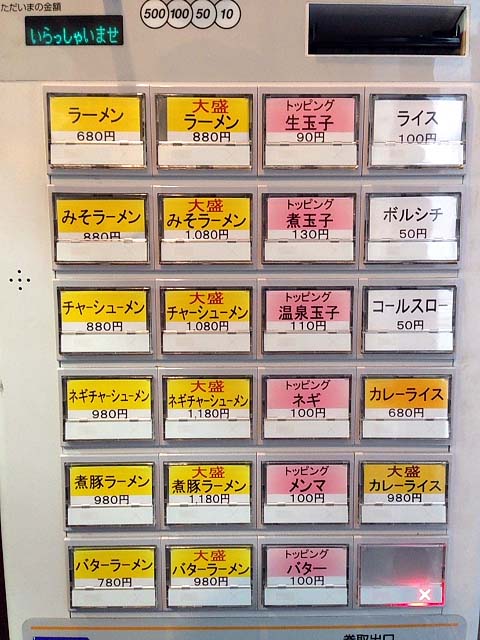 ただいまの金額
500 100 50 10
いらっしゃいませ
ラーメン
680円
大盛
ラーメン
880円
トッピング
生玉子
90円
ライス
100円
みそラーメン
880円
大盛
みそラーメン
1,080円
トッピング
煮玉子
130円
ボルシチ
50円
チャーシューメン
880円
大盛
チャーシューメン
1,080円
トッピング
温泉玉子
110円
コールスロー
50円
ネギチャーシューメン
980円
大盛
ネギチャーシューメン
1,180円
トッピング
ネギ
100円
カレーライス
680円
煮豚ラーメン
980円
大盛
煮豚ラーメン
1,180円
トッピング
メンマ
100円
大盛
カレーライス
980円
バターラーメン
780円
大盛
バターラーメン
980円
トッピング
バター
100円
×
券取出口